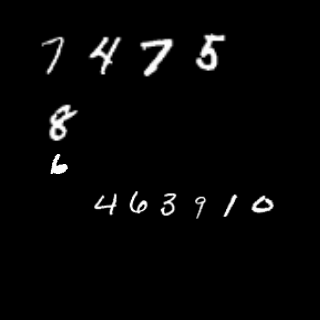 7475
8
6
463910